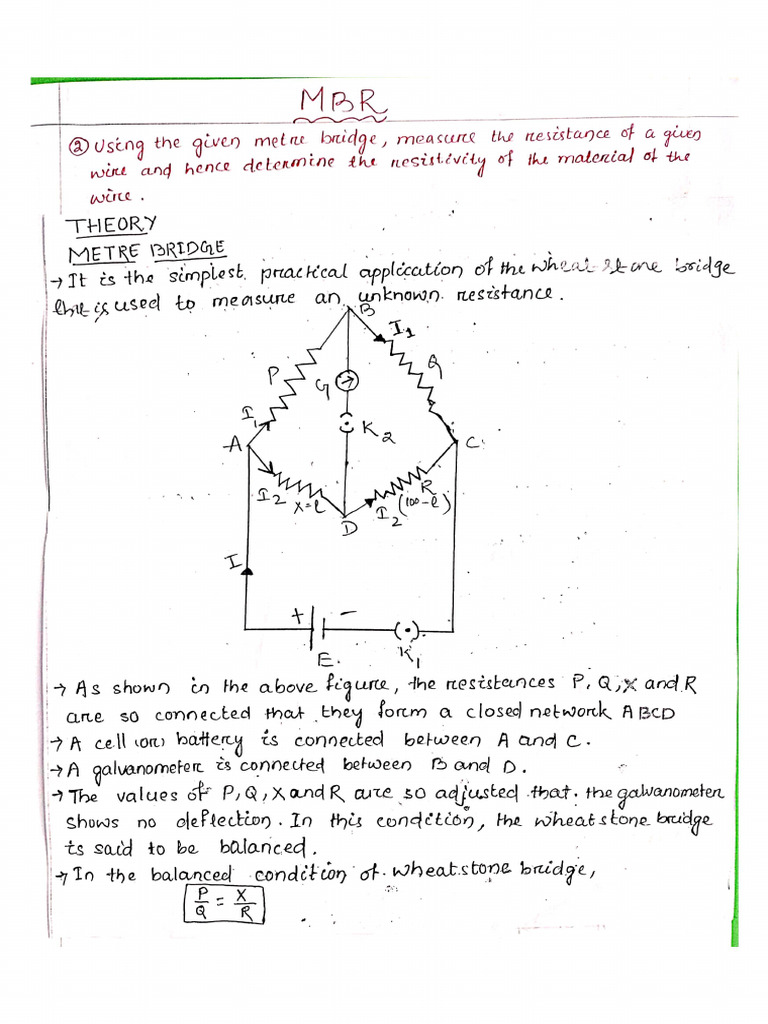 MBR
② Using the given metre bridge, measure the resistance of a given
wire and hence determine the resistivity of the material of the
wire.
THEORY
METRE BRIDGE
→ It is the simplest practical application of the wheat stone bridge
that is used to measure an unknown resistance.
B
I₁
P
Q
G
I₁
K₂
A
C
I₂
X=l
R
(100-l)
I₂
D
I
+
−
E.
K₁
→ As shown in the above figure, the resistances P, Q, X and R
are so connected that they form a closed network ABCD
→ A cell (or) battery is connected between A and C.
→ A galvanometer is connected between B and D.
→ The values of P, Q, X and R are so adjusted that the galvanometer
shows no deflection. In this condition, the wheatstone bridge
is said to be balanced.
→ In the balanced condition of wheatstone bridge,
P/Q = X/R